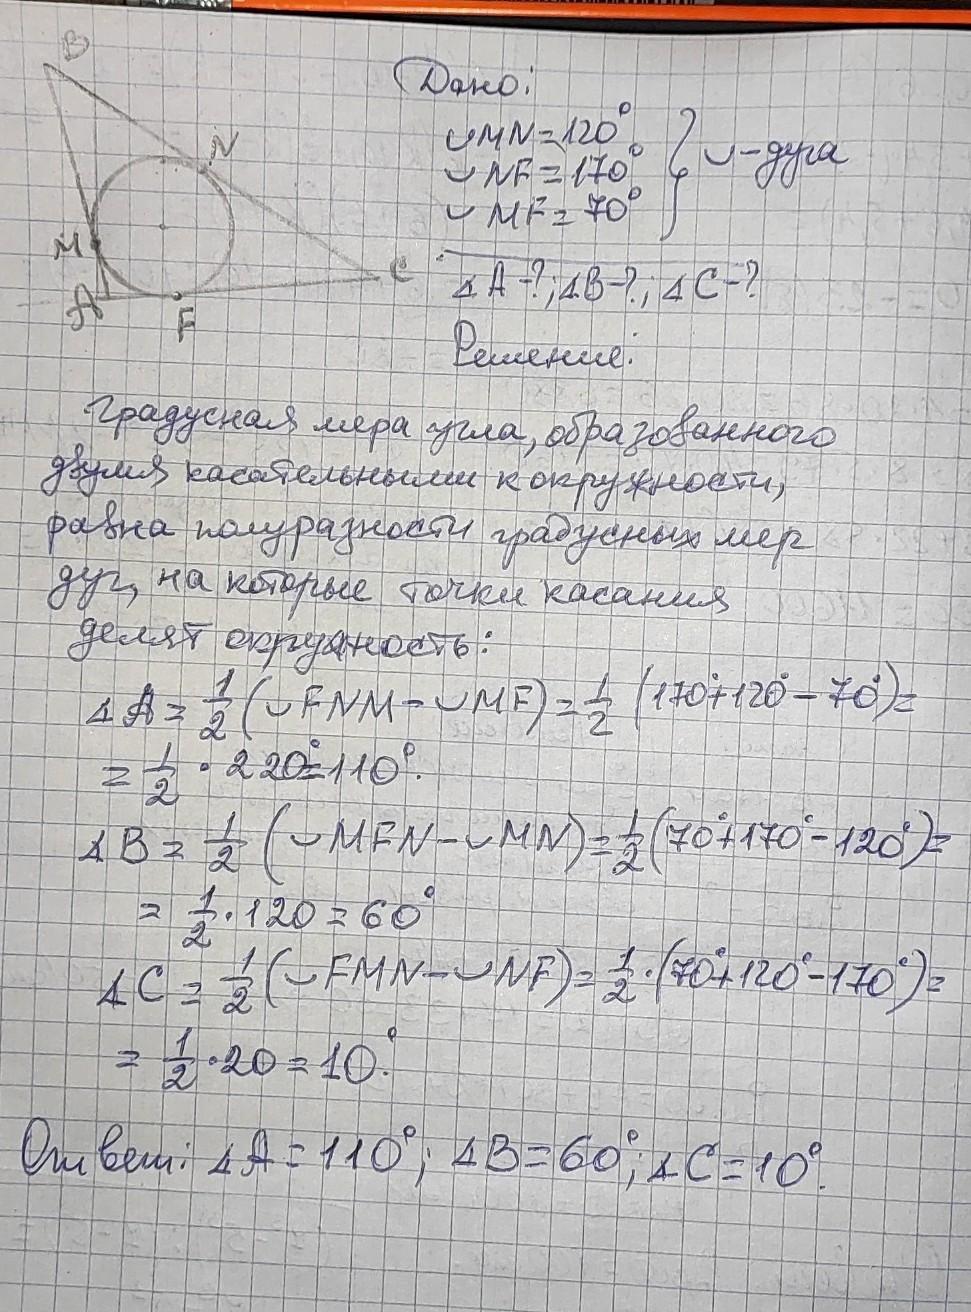 B
N
M
A
F
C
Дано:
◡MN=120°
◡NF=170°
◡MF=70°
◡-дуга
∠A-?; ∠B-?; ∠C-?
Решение:
Градусная мера угла, образованного
двумя касательными к окружности,
равна полуразности градусных мер
дуг, на которые точки касания
делят окружность:
∠A = 1/2 (◡FNM - ◡MF) = 1/2 (170°+120° - 70°) =
= 1/2 · 220° = 110°.
∠B = 1/2 (◡MFN - ◡MN) = 1/2 (70°+170° - 120°) =
= 1/2 · 120 = 60°
∠C = 1/2 (◡FMN - ◡NF) = 1/2 · (70°+120° - 170°) =
= 1/2 · 20 = 10°.
Ответ: ∠A = 110°; ∠B = 60°; ∠C = 10°.